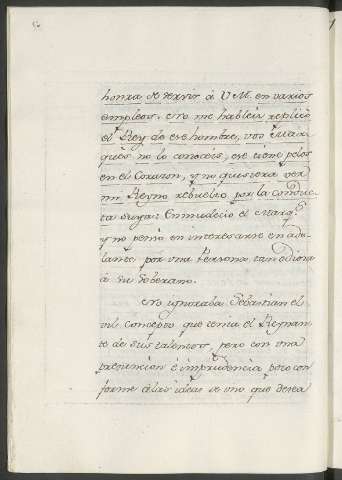 honra de servir à V M. en varios
empleos. No me hableis replicó
el Rey de ese hombre, vos Mar-
qués no lo conoceis, ese tiene pelos
en el Corazon, y no quisiera ver
mi Reyno rebuelto por la conduc-
ta suya: Enmudecio el Marqs
y no pensó en interesarse en ade-
lante por una Persona tan odiosa
à su Soberano.
No ignoraba Sebastian el
vil concepto que tenia el Reynan-
te de sus talentos, pero con una
presuncion è imprudencia poco con
forme à las ideas de uno que desea